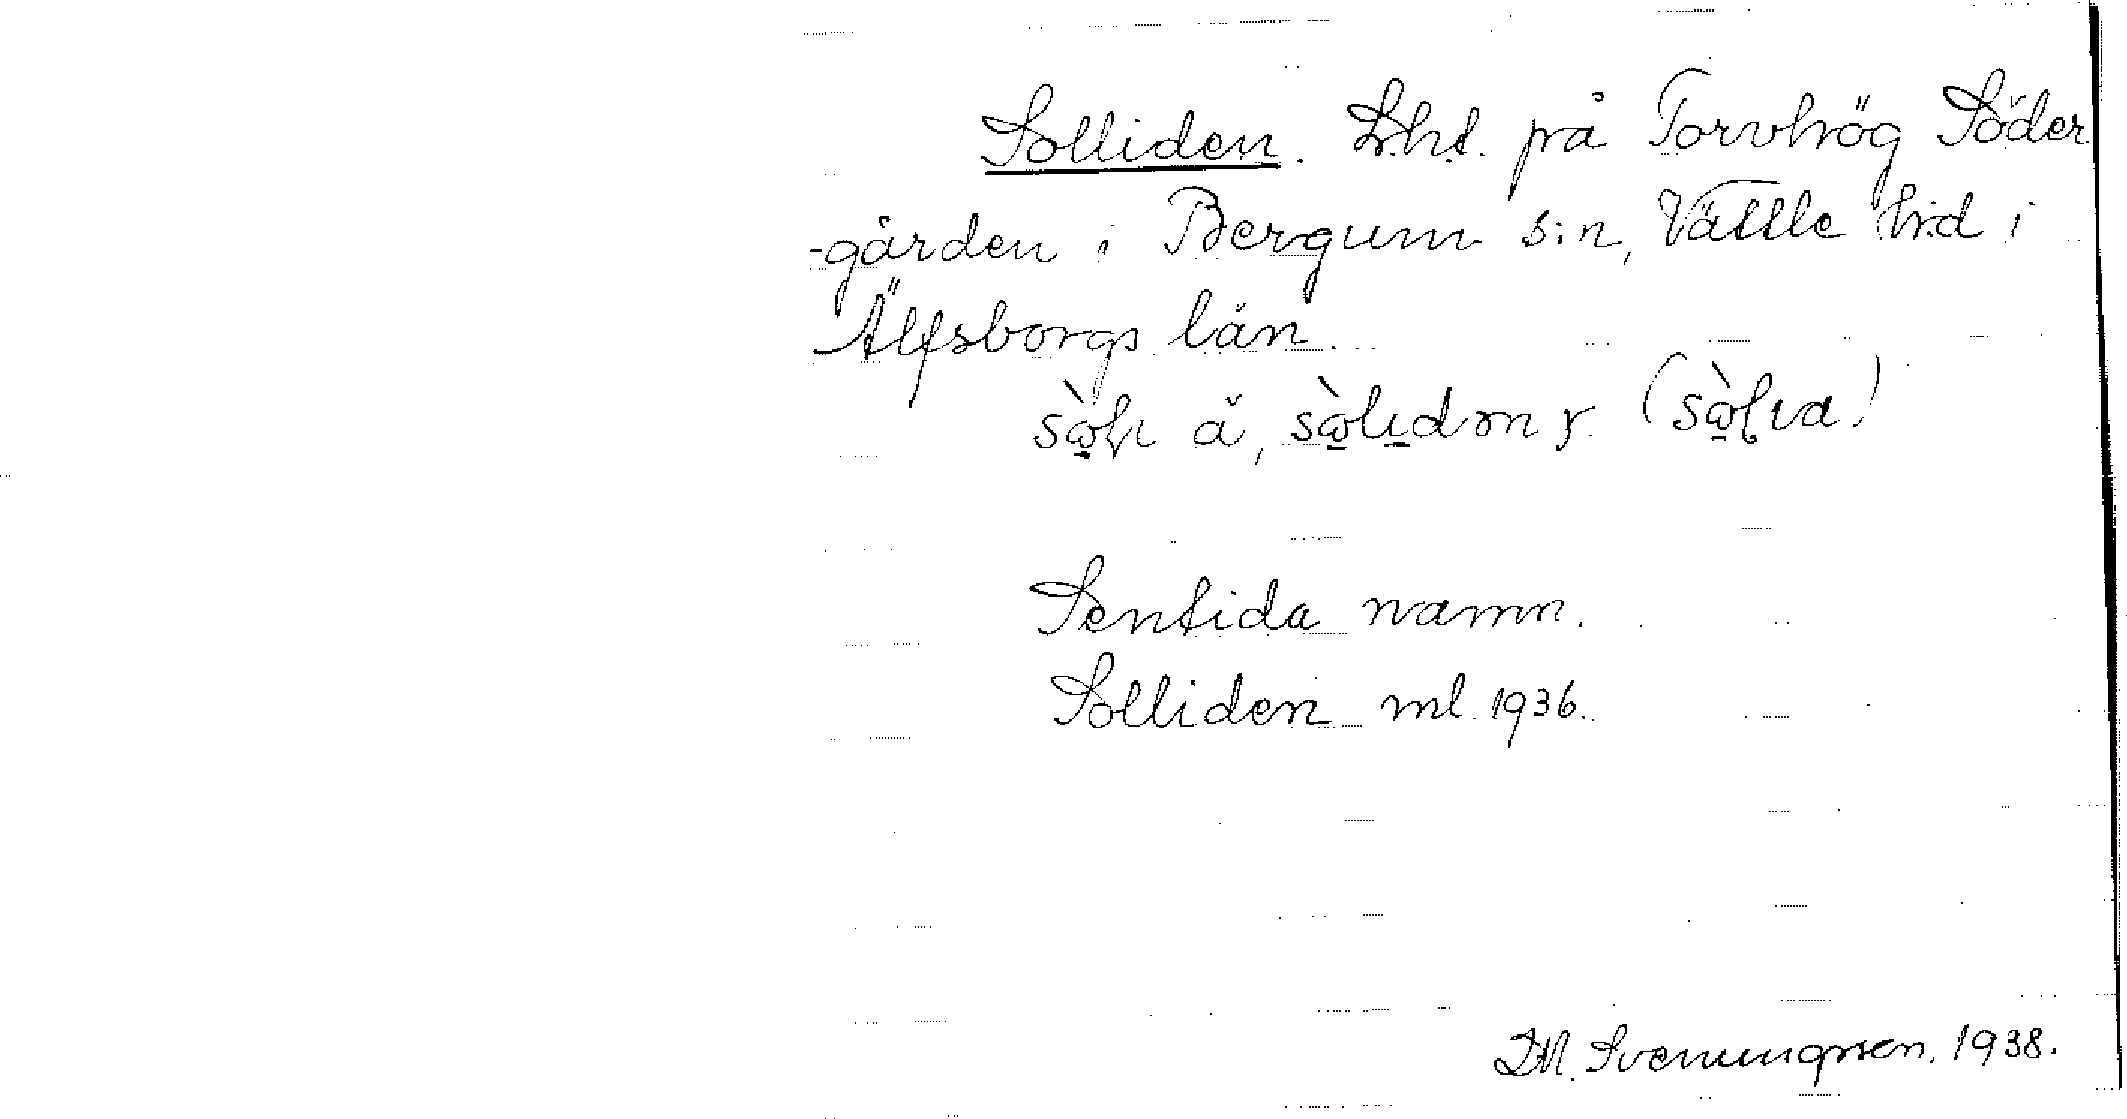 Solliden. Lht. på Torvhög Söder
-gården i Bergum s:n, Vättle hd i
Älfsborgs län.
Sentida namn.
Solliden ml 1936.
D.M. Svenungsson, 1938.